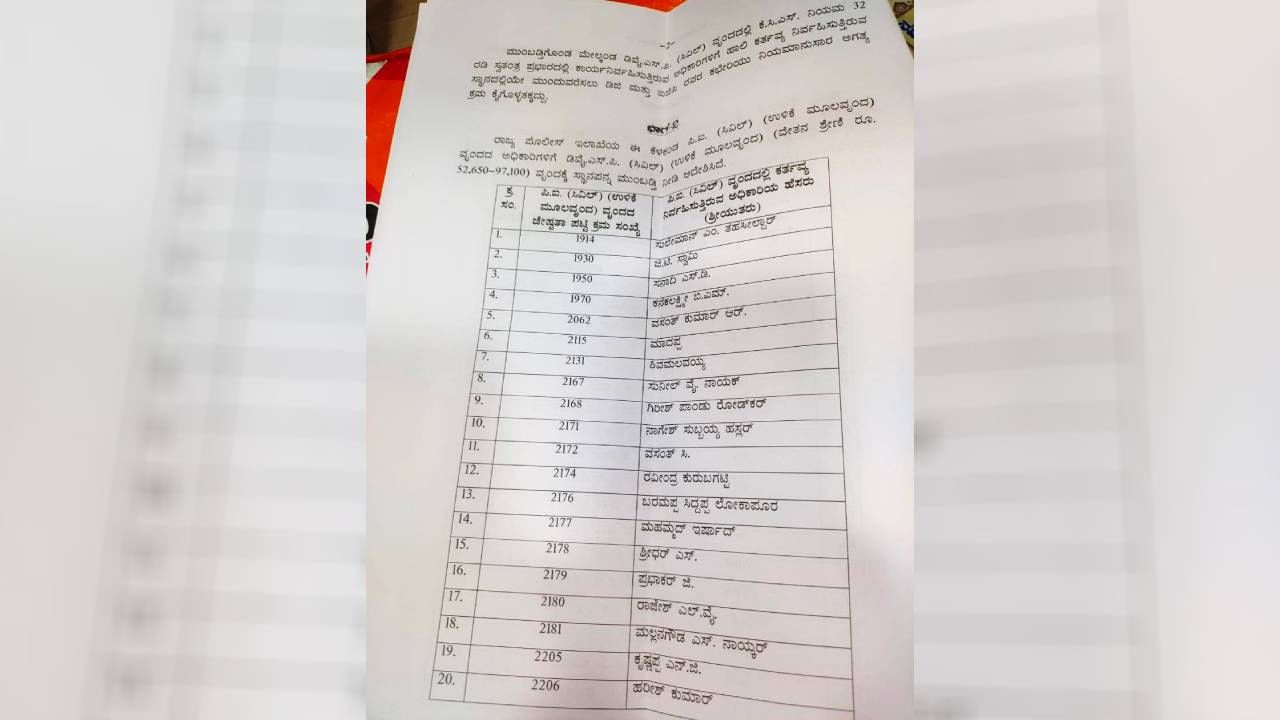 -2-
ಮುಂಬಡ್ತಿಗೊಂಡ ಮೇಲ್ಕಂಡ ಡಿವೈ.ಎಸ್.ಪಿ (ಸಿವಿಲ್) ವೃಂದದಲ್ಲಿ ಕೆ.ಸಿ.ಎಸ್. ನಿಯಮ 32
ರಡಿ ಸ್ವತಂತ್ರ ಪ್ರಭಾರದಲ್ಲಿ ಕಾರ್ಯನಿರ್ವಹಿಸುತ್ತಿರುವ ಅಧಿಕಾರಿಗಳಿಗೆ ಹಾಲಿ ಕರ್ತವ್ಯ ನಿರ್ವಹಿಸುತ್ತಿರುವ
ಸ್ಥಾನದಲ್ಲಿಯೇ ಮುಂದುವರೆಸಲು ಡಿಜಿ ಮತ್ತು ಐಜಿಪಿ ರವರ ಕಛೇರಿಯು ನಿಯಮಾನುಸಾರ ಅಗತ್ಯ
ಕ್ರಮ ಕೈಗೊಳ್ಳತಕ್ಕದ್ದು.
ರಾಜ್ಯ ಪೊಲೀಸ್ ಇಲಾಖೆಯ ಈ ಕೆಳಕಂಡ ಪಿ.ಐ. (ಸಿವಿಲ್) (ಉಳಿಕೆ ಮೂಲವೃಂದ)
ವೃಂದದ ಅಧಿಕಾರಿಗಳಿಗೆ ಡಿವೈ.ಎಸ್.ಪಿ. (ಸಿವಿಲ್) (ಉಳಿಕೆ ಮೂಲವೃಂದ) (ವೇತನ ಶ್ರೇಣಿ ರೂ.
52,650-97,100) ವೃಂದಕ್ಕೆ ಸ್ಥಾನಪನ್ನ ಮುಂಬಡ್ತಿ ನೀಡಿ ಆದೇಶಿಸಿದೆ.
ಕ್ರ. ಸಂ. ಪಿ.ಐ. (ಸಿವಿಲ್) (ಉಳಿಕೆ ಮೂಲವೃಂದ) ವೃಂದದ ಜೇಷ್ಠತಾ ಪಟ್ಟಿ ಕ್ರಮ ಸಂಖ್ಯೆ ಪಿ.ಐ. (ಸಿವಿಲ್) ವೃಂದದಲ್ಲಿ ಕರ್ತವ್ಯ ನಿರ್ವಹಿಸುತ್ತಿರುವ ಅಧಿಕಾರಿಯ ಹೆಸರು (ಶ್ರೀಯುತರು)
1. 1914 ಸುಲೇಮಾನ್ ಎಂ. ತಹಸೀಲ್ದಾರ್
2. 1930 ಜಿ.ಟಿ. ಸ್ವಾಮಿ
3. 1950 ಸನಾದಿ ಎಸ್.ಡಿ.
4. 1970 ಕನಕಲಕ್ಷ್ಮೀ ಬಿ.ಎಮ್.
5. 2062 ವಸಂತ್ ಕುಮಾರ್ ಆರ್.
6. 2115 ಮಾದಪ್ಪ
7. 2131 ಶಿವಮಲವಯ್ಯ
8. 2167 ಸುನೀಲ್ ವೈ. ನಾಯಕ್
9. 2168 ಗಿರೀಶ್ ಪಾಂಡು ರೋಡ್‌ಕರ್
10. 2171 ನಾಗೇಶ್ ಸುಬ್ಬಯ್ಯ ಹಸ್ಲರ್
11. 2172 ವಸಂತ್ ಸಿ.
12. 2174 ರವೀಂದ್ರ ಕುರುಬಗಟ್ಟಿ
13. 2176 ಬರಮಪ್ಪ ಸಿದ್ದಪ್ಪ ಲೋಕಾಪೂರ
14. 2177 ಮಹಮ್ಮದ್ ಇರ್ಷಾದ್
15. 2178 ಶ್ರೀಧರ್ ಎಸ್.
16. 2179 ಪ್ರಭಾಕರ್ ಜಿ.
17. 2180 ರಾಜೇಶ್ ಎಲ್.ವೈ.
18. 2181 ಮಲ್ಲನಗೌಡ ಎಸ್. ನಾಯ್ಕರ್
19. 2205 ಕೃಷ್ಣಪ್ಪ ಎನ್.ಜಿ.
20. 2206 ಹರೀಶ್ ಕುಮಾರ್